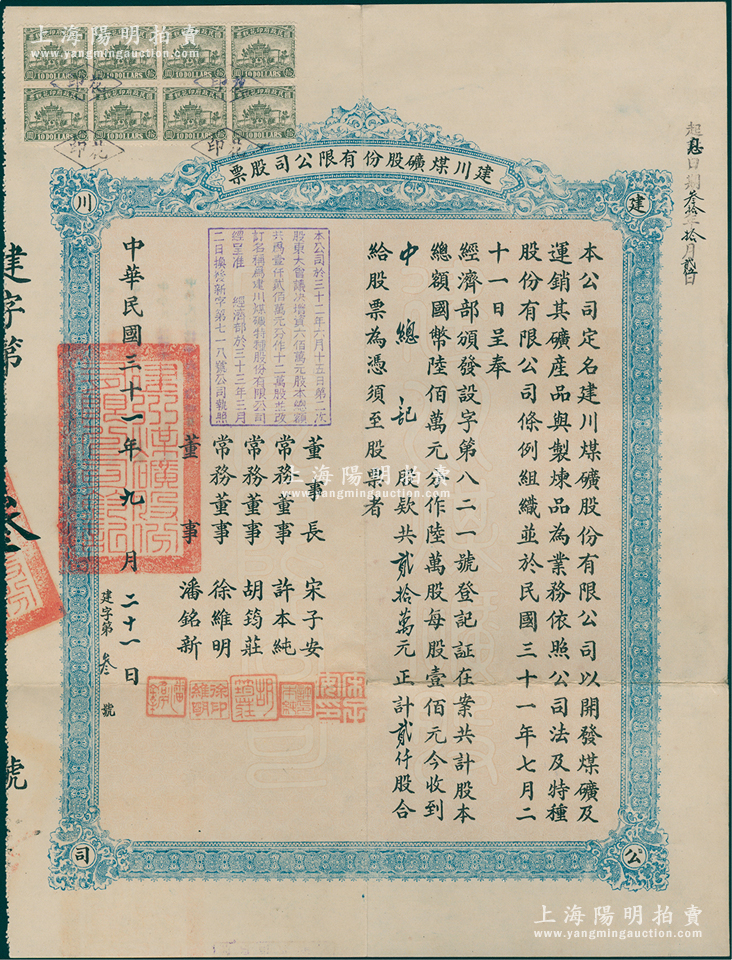 上海陽明拍賣
www.yangmingauction.com
10 DOLLARS
10 DOLLARS
10 DOLLARS
10 DOLLARS
10 DOLLARS
10 DOLLARS
10 DOLLARS
10 DOLLARS
印花
印花
印花
印花
建川煤礦股份有限公司股票
建
川
公
司
本公司定名建川煤礦股份有限公司以開發煤礦及
運銷其礦產品與製煉品為業務依照公司法及特種
股份有限公司條例組織並於民國三十一年七月二
十一日呈奉
經濟部頒發設字第八二一號登記証在案共計股本
總額國幣陸佰萬元分作陸萬股每股壹佰元今收到
中總記股欵共貳拾萬元正計貳仟股合
給股票為憑須至股票者
董事長 宋子安
常務董事 許本純
常務董事 胡筠莊
常務董事 徐維明
董事 潘銘新
本公司於三十二年六月十五日第二次
股東大會議決增資六佰萬元股本總額
共為壹仟貳佰萬元分作十二萬股並改
訂名稱為建川煤礦特種股份有限公司
經呈准 經濟部於三十三年三月
二日換發新字第七一八號公司執照
中華民國三十一年九月二十一日
建字第叁號
建字第叁號
起息日期叁拾年拾月貳日
上海陽明拍賣
www.yangmingauction.com
上海陽明拍賣
www.yangmingauction.com